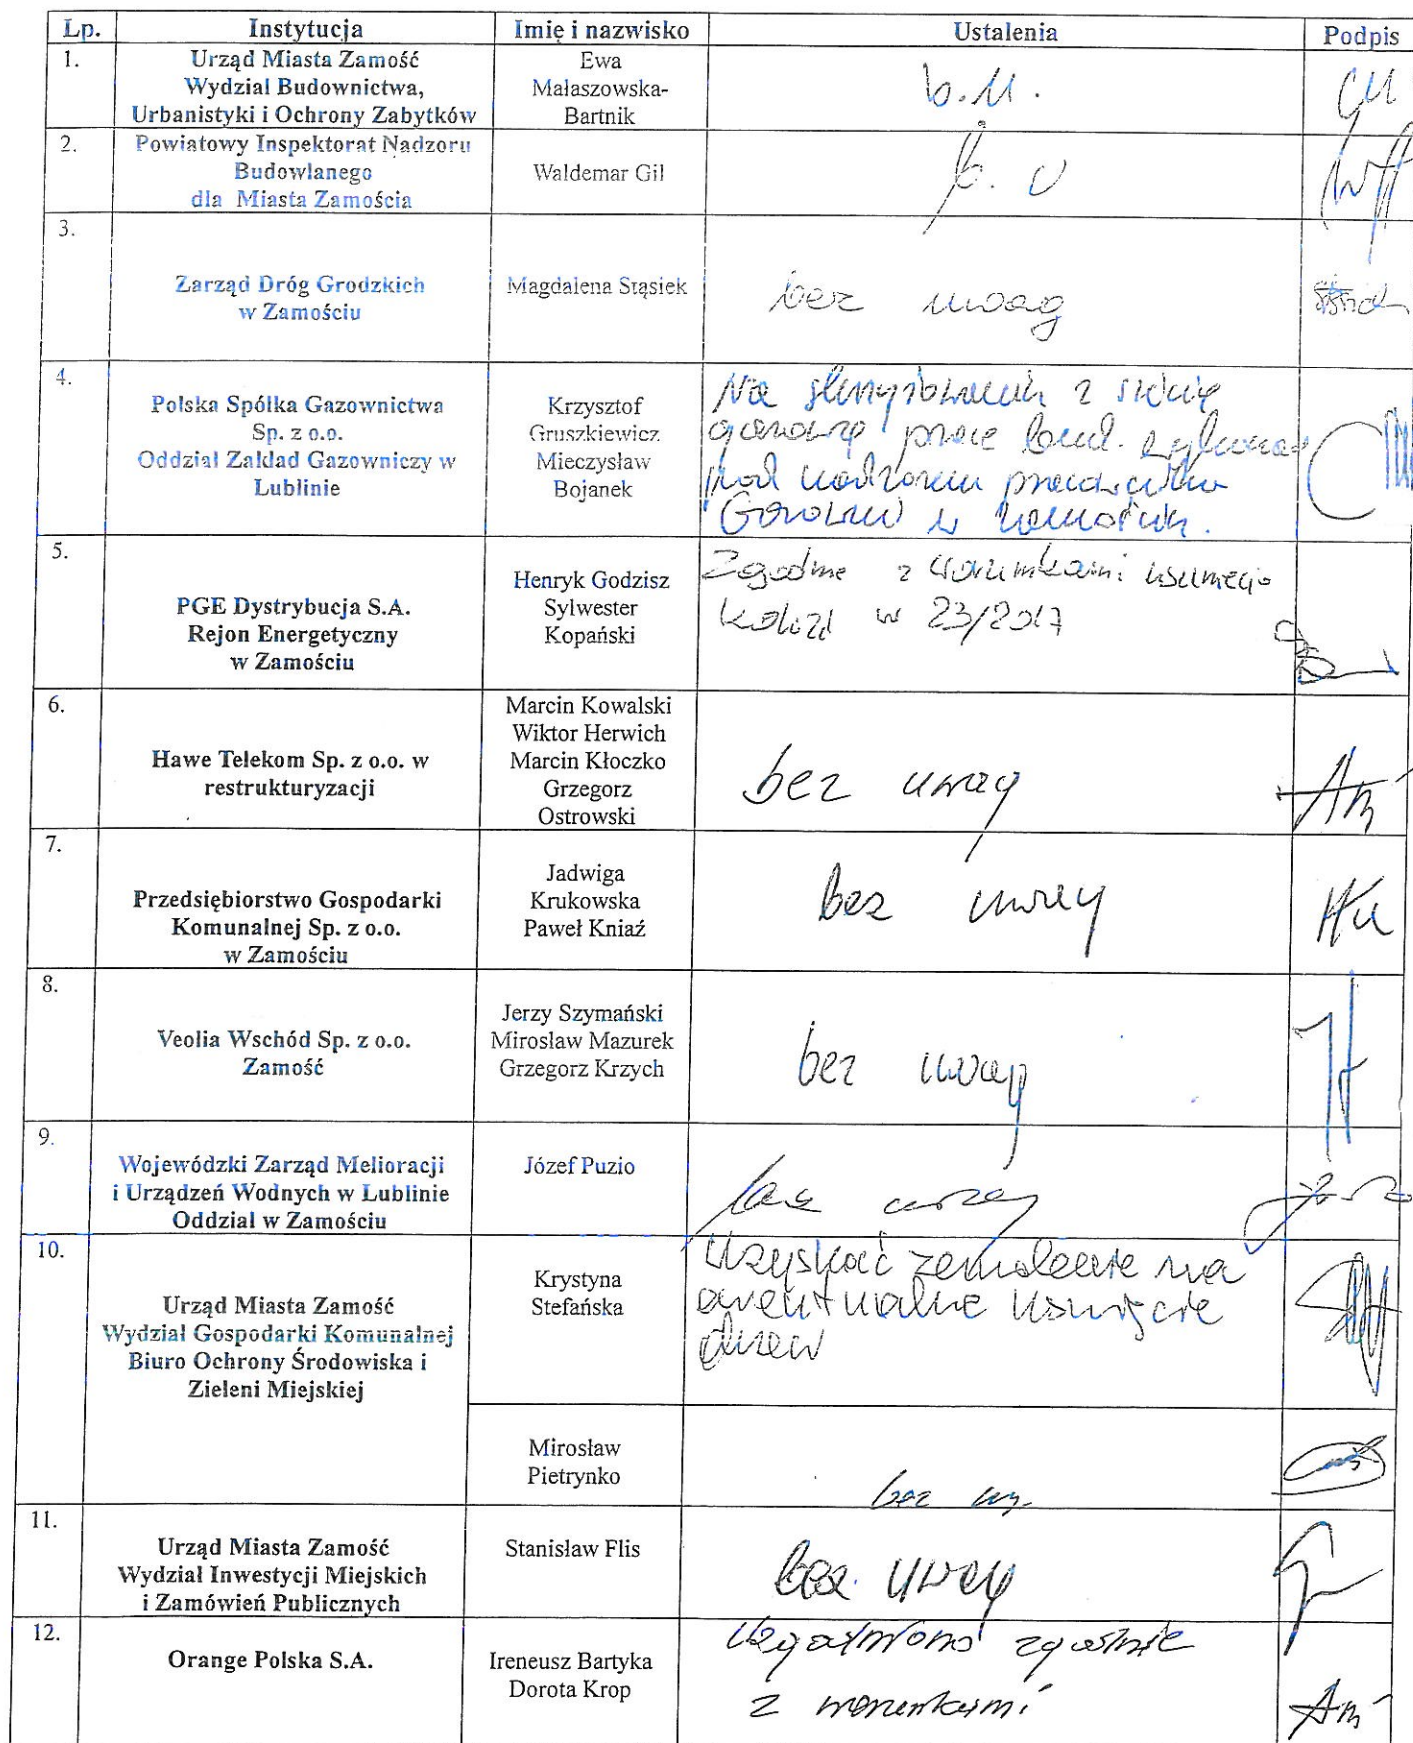 Lp. Instytucja Imię i nazwisko Ustalenia Podpis
1. Urząd Miasta Zamość
Wydział Budownictwa,
Urbanistyki i Ochrony Zabytków
Ewa
Małaszowska-
Bartnik
b.u.
2. Powiatowy Inspektorat Nadzoru
Budowlanego
dla Miasta Zamościa
Waldemar Gil
b. u
3.
Zarząd Dróg Grodzkich
w Zamościu
Magdalena Stąsiek
bez uwag
4.
Polska Spółka Gazownictwa
Sp. z o.o.
Oddział Zakład Gazowniczy w
Lublinie
Krzysztof
Gruszkiewicz
Mieczysław
Bojanek
Na skrzyżowaniach z siecią
gazową prace bud.
pod nadzorem pracownika
Gazowni w Zamościu.
5.
PGE Dystrybucja S.A.
Rejon Energetyczny
w Zamościu
Henryk Godzisz
Sylwester
Kopański
Zgodnie z warunkami usunięcia
kolizji w 23/2017
6.
Hawe Telekom Sp. z o.o. w
restrukturyzacji
Marcin Kowalski
Wiktor Herwich
Marcin Kłoczko
Grzegorz
Ostrowski
bez uwag
7.
Przedsiębiorstwo Gospodarki
Komunalnej Sp. z o.o.
w Zamościu
Jadwiga
Krukowska
Paweł Kniaź
bez uwag
8.
Veolia Wschód Sp. z o.o.
Zamość
Jerzy Szymański
Mirosław Mazurek
Grzegorz Krzych
bez uwag
9.
Wojewódzki Zarząd Melioracji
i Urządzeń Wodnych w Lublinie
Oddział w Zamościu
Józef Puzio
bez uwag
10.
Urząd Miasta Zamość
Wydział Gospodarki Komunalnej
Biuro Ochrony Środowiska i
Zieleni Miejskiej
Krystyna
Stefańska
Uzyskać zezwolenie na
ewentualne usunięcie
drzew
Mirosław
Pietrynko
bez uw.
11.
Urząd Miasta Zamość
Wydział Inwestycji Miejskich
i Zamówień Publicznych
Stanisław Flis
bez uwag
12.
Orange Polska S.A.
Ireneusz Bartyka
Dorota Krop
Uzgodniono zgodnie
z warunkami